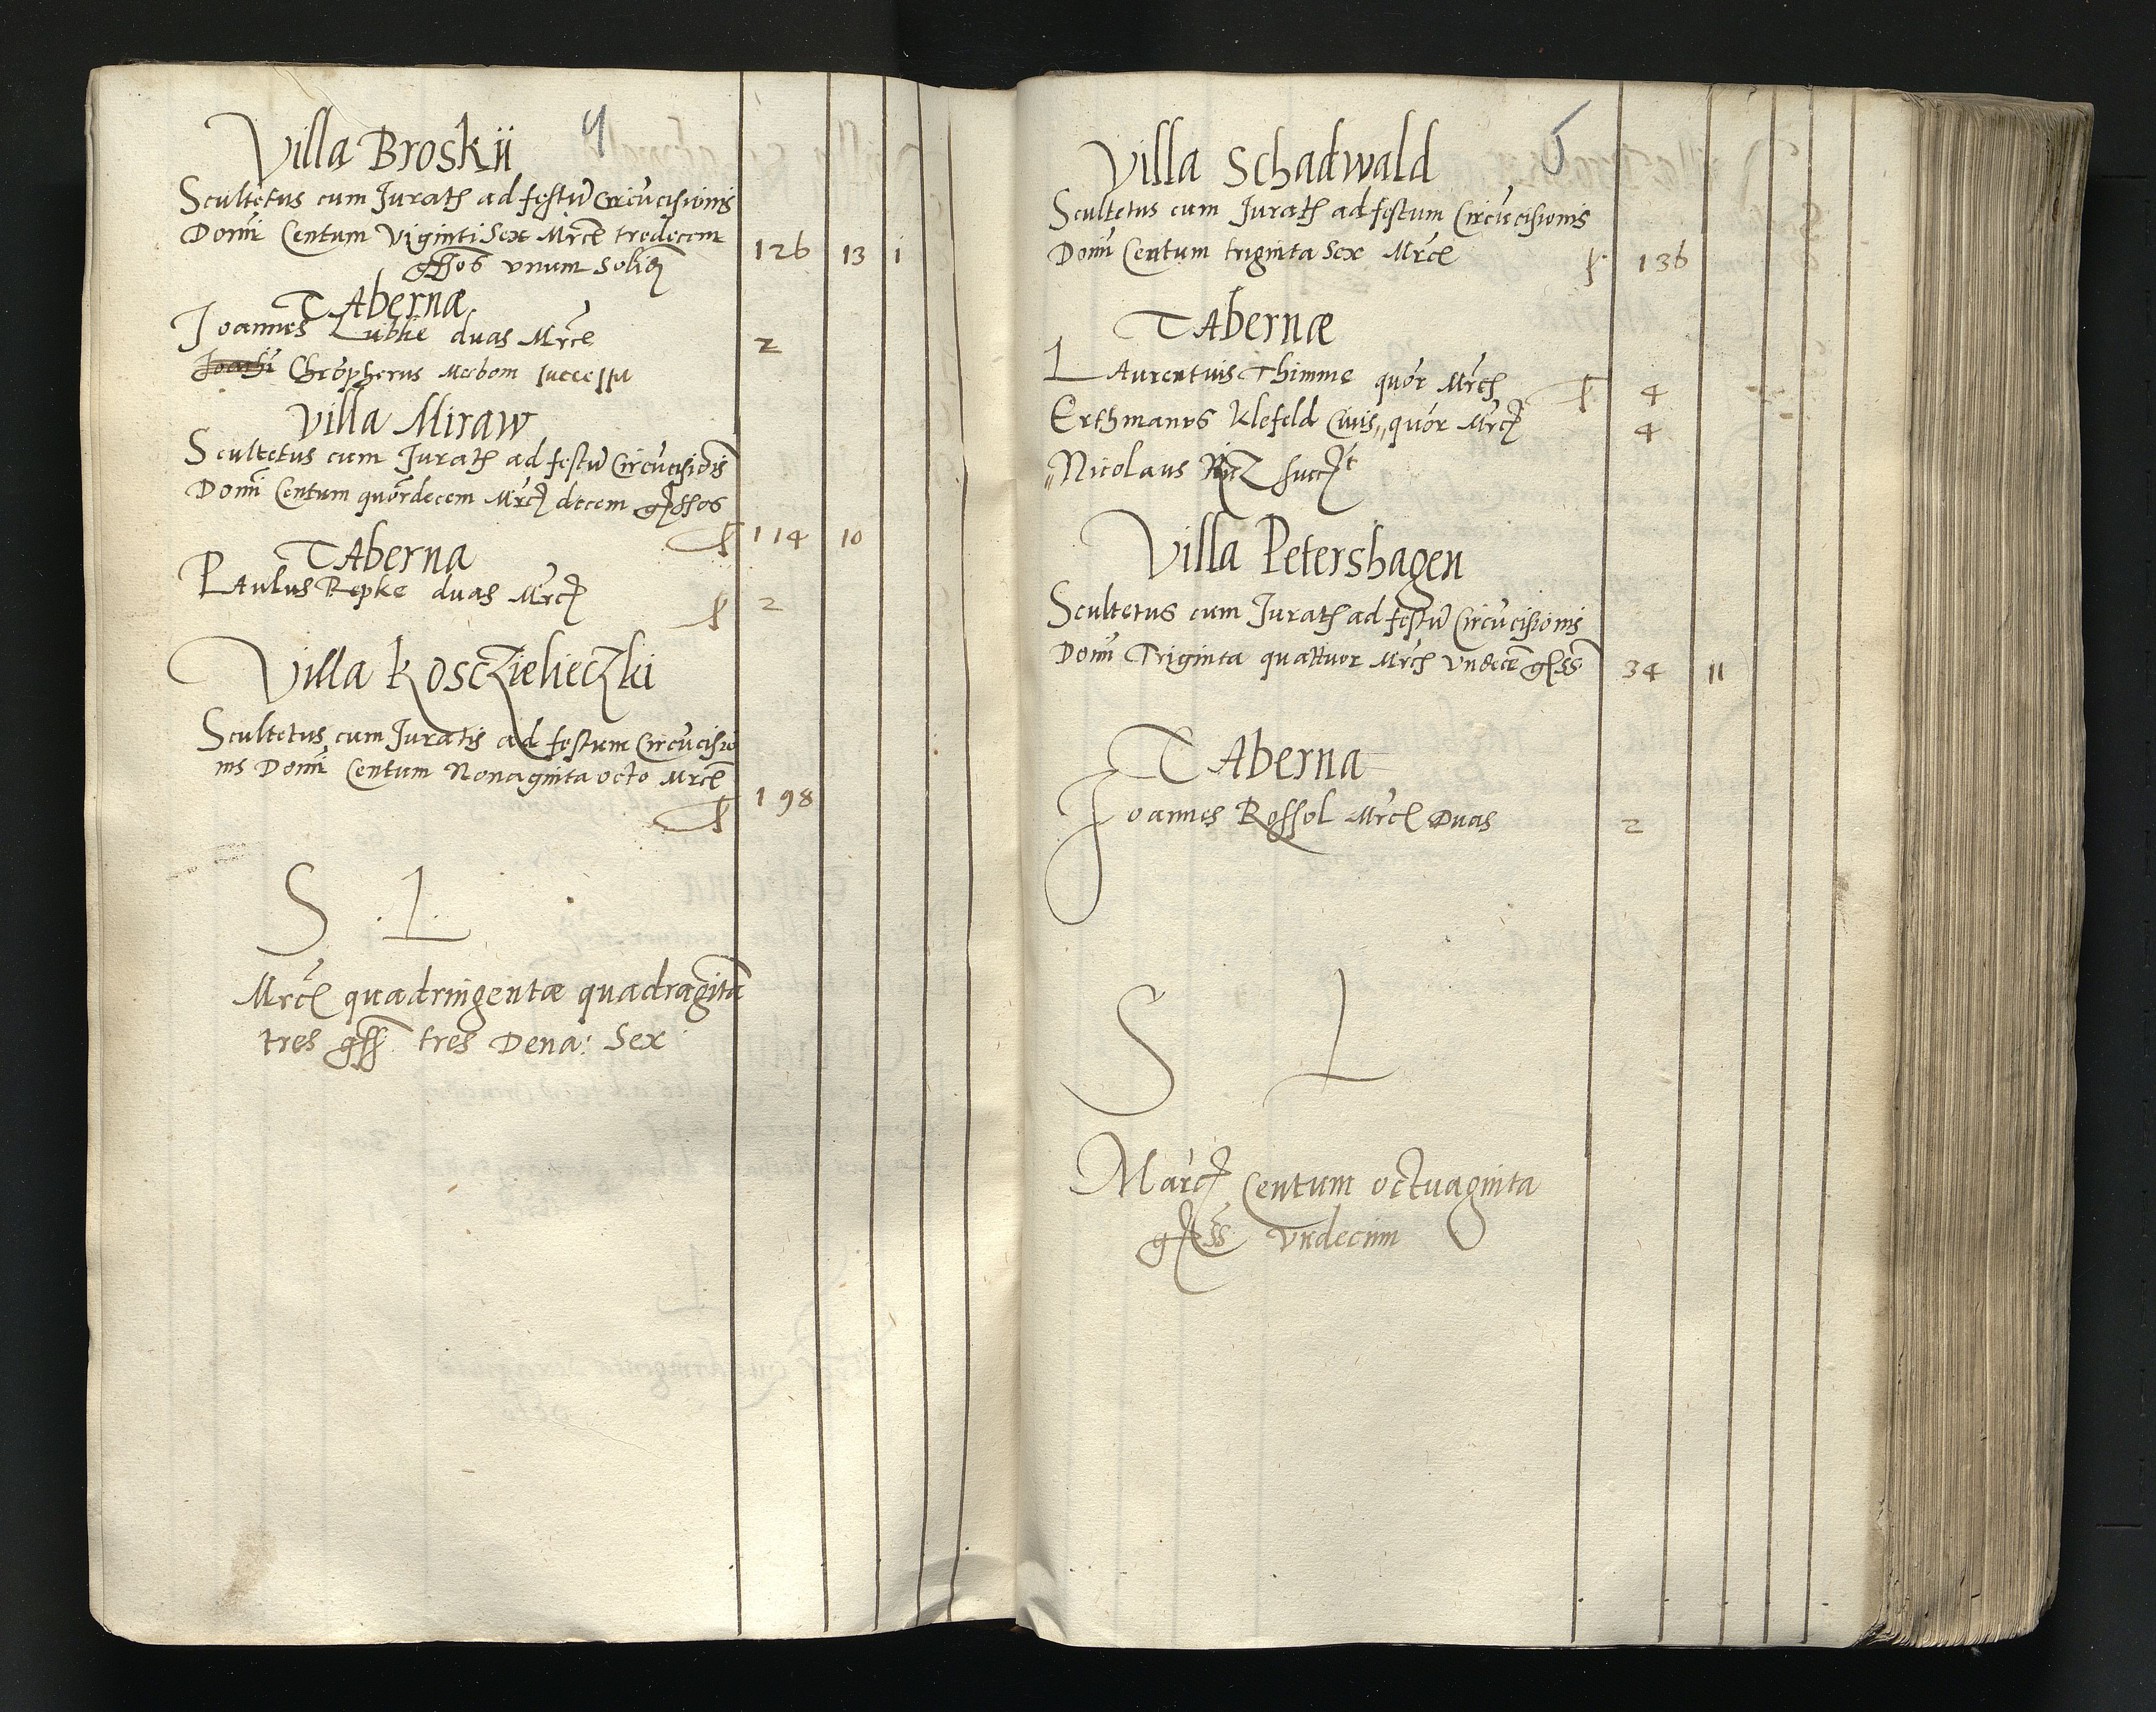 4
Villa Broskii
Scultetus cum Jurat̃ ad festũ Circũcisionis
Domĩ Centum Viginti Sex Mrc̃ tredecem 126 13 1
gssos vnum Solid̃
TAbernæ
Joannes Lubke duas Mrc̃ 2
Chrõpherus Merbom successit
Villa Miraw
Scultetus cum Jurat̃ ad festũ Circũcisiõis
Domĩ Centum quõrdecem Mrc̃ decem grssos 114 10
TAberna
PAulus Repke duas Mrc̃ 2
Villa Kosczielieczki
Scultetus cum Juratis ad festum Circũcisio
nis Domĩ Centum Nonaginta octo Mrc̃ 198
S . L .
Mrc̃ quadringentæ quadragĩta
tres gss̃ tres Dena: Sex
5
Villa Schadwald
Scultetus cum Jurat̃ ad festum Circũcisionis
Domĩ Centum triginta Sex Mrc̃ 136
TAbernæ
LAurentius Thimme quõr Mrc̃ 4
Erthmanus Klefeld Civis,, quõr Mrc̃ 4
,,Nicolaus succ̃t
Villa Petershagen
Scultetus cum Jurat̃ ad festũ Circũcisionis
Domĩ Triginta quattuor Mrc̃ Vndecẽ grss̃ 34 11
TAberna
Joannes Rossol Mrc̃ Duas 2
S L
Marc̃ Centum octuaginta
grss̃ vndecim